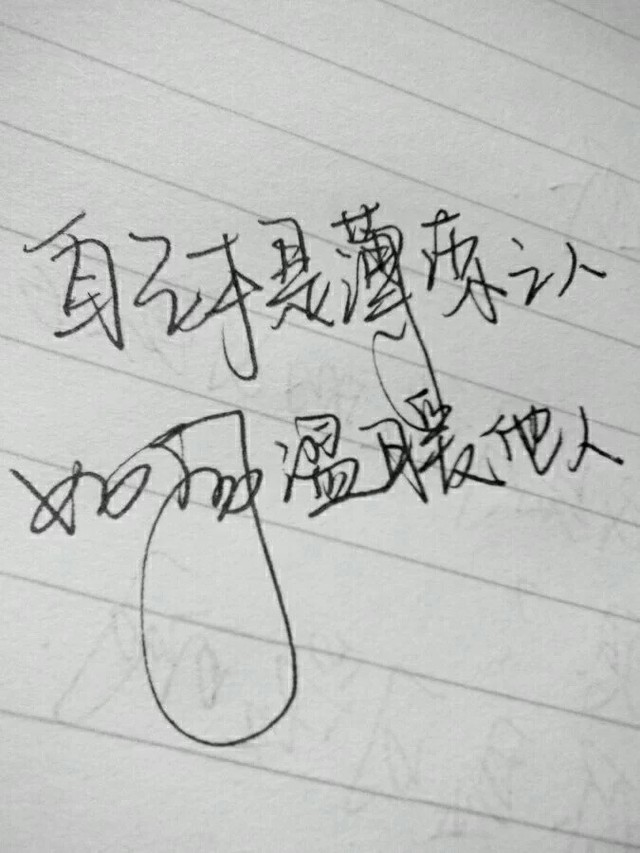 自己本是薄凉之人
如何温暖他人